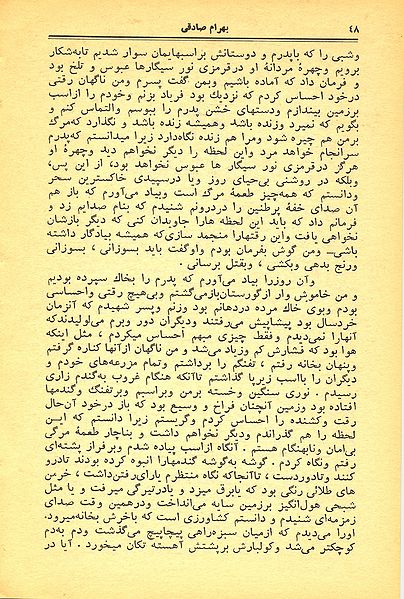 ۴۸ بهرام صادقی
وشبی را که باپدرم و دوستانش براسبهایمان سوار شدیم تابه‌شکار
برویم وچهرهٔ مردانهٔ او درقرمزی نور سیگارها عبوس و تلخ بود
و فرمان داد که آماده باشیم وبمن گفت بسرم ومن ناگهان رقتی
درخود احساس کردم که نزدیک بود فریاد بزنم وخودم را ازاسب
برزمین بیندازم ودستهای خشن پدرم را ببوسم والتماس کنم و
بگویم که نمیرد وزنده باشد وهمیشه زنده باشد و نگذارد که‌مرگ
برمن هم چیره شود ومرا هم زنده نگاه‌دارد زیرا میدانستم که‌پدرم
سرانجام خواهد مرد واین لحظه را دیگر نخواهم دید وچهرهٔ او
هرگز درقرمزی نور سیگار ها عبوس نخواهد بود، از این پس،
وبلکه در روشنی بی‌حیای روز ویا درسپیدی خاکسترین سحر
ودانستم که همه‌چیز طعمهٔ مرگ است وبیاد می‌آورم که باز هم
آن صدای خفهٔ پرطنین را دردرونم شنیدم که بنام صدایم زد و
فرمانم داد که باید این لحظه هارا جاویدان کنی که دیگر بازشان
نخواهی یافت واین رقتهارا منجمد سازی‌که همیشه بیادگار داشته
باشی_ ومن گوش بفرمان بودم واوگفت باید بسوزانی ، بسوزانی
ورنج بدهی وبکشی ، وبقتل برسانی .
وآن روزرا بیاد می‌آورم که پدرم را بخاک سپرده بودیم
و من خاموش وار ازگورستان‌بازمی‌گشتم وبی‌هیچ رقتی واحساسی
بودم وبوی خاک مرده دردهانم بود وزنم وپسر شهیدم که آنزمان
خردسال بود پیشاپیش می‌رفتند ودیگران دور وبرم می‌لولیدندکه
آنهارا نمی‌دیدم وفقط چیزی مبهم احساس میکردم ، مثل اینکه
هوا بود که فشارش کم وزیاد می‌شد و من ناگهان ازآنها کناره گرفتم
وپنهان بخانه رفتم ، تفنگم را برداشتم وتمام مزرعه‌های خودم و
دیگران را بااسب زیرپا گذاشتم تاآنکه هنگام غروب به‌گندم زاری
رسیدم . نوری سنگین وخسته برمن وبراسبم وبرتفنگ وگندمها
افتاده بود وزمین آنچنان فراخ و وسیع بود که باز درخود آن‌حال
رقت وکشنده را احساس کردم وگریستم زیرا دانستم که این
لحظه را هم گذراندم ودیگر نخواهم داشت و بناچار طعمهٔ مرگی
بی‌امان ونابهنگام هستم . آنگاه ازاسب پیاده شدم وبرفراز پشته‌ای
رفتم ونگاه کردم . گوشه به‌گوشه گندمهارا انبوه کرده بودند تادرو
کنند وتادوردست ، تاآنجاکه نگاه منتظرم یارای‌رفتن‌داشت ، خرمن
های طلائی رنگی بود که یابرق میزد و یادرتیرگی میرفت و یا مثل
شبحی هول‌انگیز برزمین سایه می‌انداخت ودرهمین وقت صدای
زمزمه‌ای شنیدم و دانستم کشاورزی است که باخرش بخانه‌میرود.
اورا می‌دیدم که ازمیان سبزه‌راهی پیچاپیچ می‌گذشت ودم به‌دم
کوچکتر می‌شد وکولبارش برپشتش آهسته تکان میخورد . آیا در